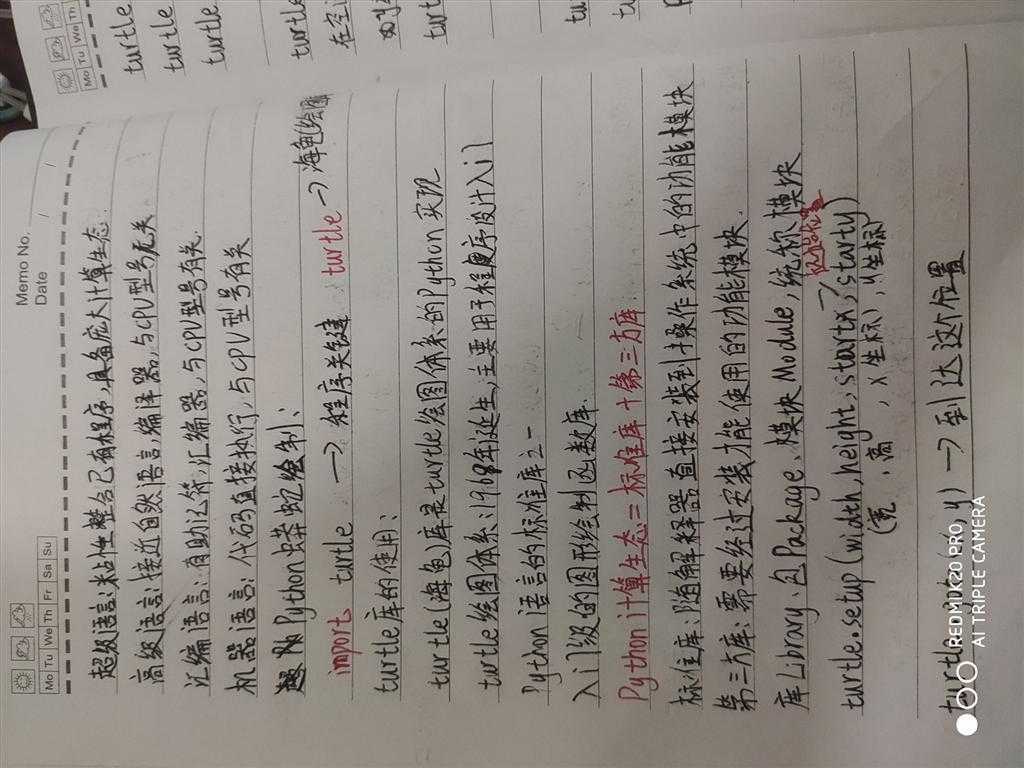 Memo No.
Date / /
Mo Tu We Th Fr Sa Su
超级语言:粘性整合已有程序,具备庞大计算生态.
高级语言:接近自然语言,编译器,与CPU型号无关
汇编语言:有助记符,汇编器,与CPU型号有关.
机器语言:代码直接执行,与CPU型号有关
Python蟒蛇绘制:
import turtle → 程序关键 turtle → 海龟绘图
turtle库的使用:
turtle(海龟)库是turtle绘图体系的Python实现
turtle绘图体系:1968年诞生,主要用于程序设计入门
Python语言的标准库之一
入门级的图形绘制函数库.
Python计算生态=标准库+第三方库
标准库:随解释器直接安装到操作系统中的功能模块
第三方库:需要经过安装才能使用的功能模块.
库Library、包Package、模块Module,统称模块
turtle.setup(width,height,startx,starty)
(宽,高,x坐标,y坐标)
y) → 到达这个位置
Mo Tu We Th
turtle
turtle
turtle
turtle
REDMI K20 PRO
AI TRIPLE CAMERA